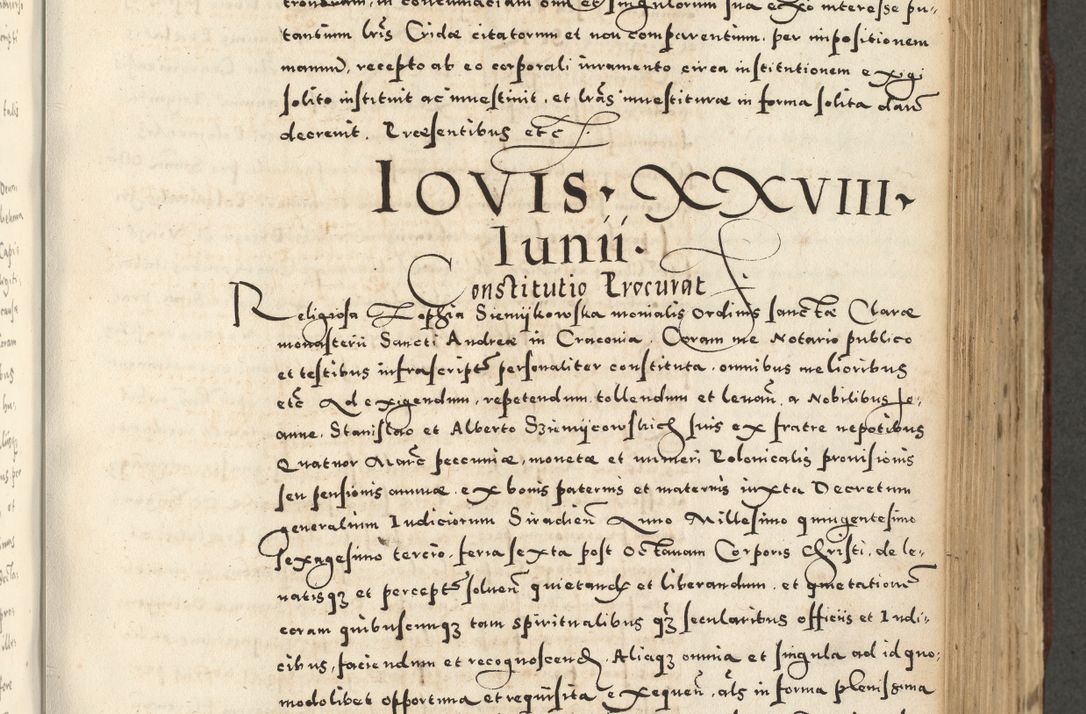 tantium lrãs Cridae citatorum et non comparentium, per impositionem
manuũ, recepto ab eo corporali iuramento circa institutionem exigi
solito instituit ac inuestiuit, et lrãs inuestiturae in forma solita darẽ
decreuit. Praesentibus etc
IOVIS · XXVIII ·
Iunii ·
Constitutio Procurat
Religiosa Zophia Siemijkowska monialis Ordinis sanctae Clarae
monasterii Sancti Andreae in Cracouia. Coram me Notario publico
et testibus infrascriptis personaliter constituta, omnibus melioribus
etc̃ Ad exigendum, repetendum, tollendum et leuanñ, a Nobilibus Jo-
anne, Stanislao et Alberto Sziemijcowskich suis ex fratre nepotibus
Quatuor Marc̃ pecuniae, monetae et numeri Polonicalis prouisionis
seu pensionis annuae, ex bonis paternis et maternis iuxta Decretum
generalium Iudiciorum Siradieñ Anno Millesimo quingentesimo
sexagesimo tercio, feria sexta post Octauam Corporis Christi, de le-
uatisqz et perceptis soluenñ quietandũ et liberandum, et quietationẽ
coram quibuscunqz tam spiritualibus qz secularibus officiis et Iudi-
cibus, faciendum et recognoscendũ, Aliaqz omnia et singula ad id quo-
modolibet opportuna et requisita exequeñ, als in forma plenissima